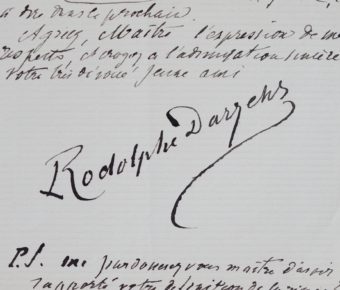 à dire dans le prochain
Agréez, Maître l'expression de mes
respects, et croyez à l'admiration sincère
votre très dévoué jeune ami
Rodolphe Darzens
P.S. me pardonnez vous maître d'avoir
rapporté votre définition de la